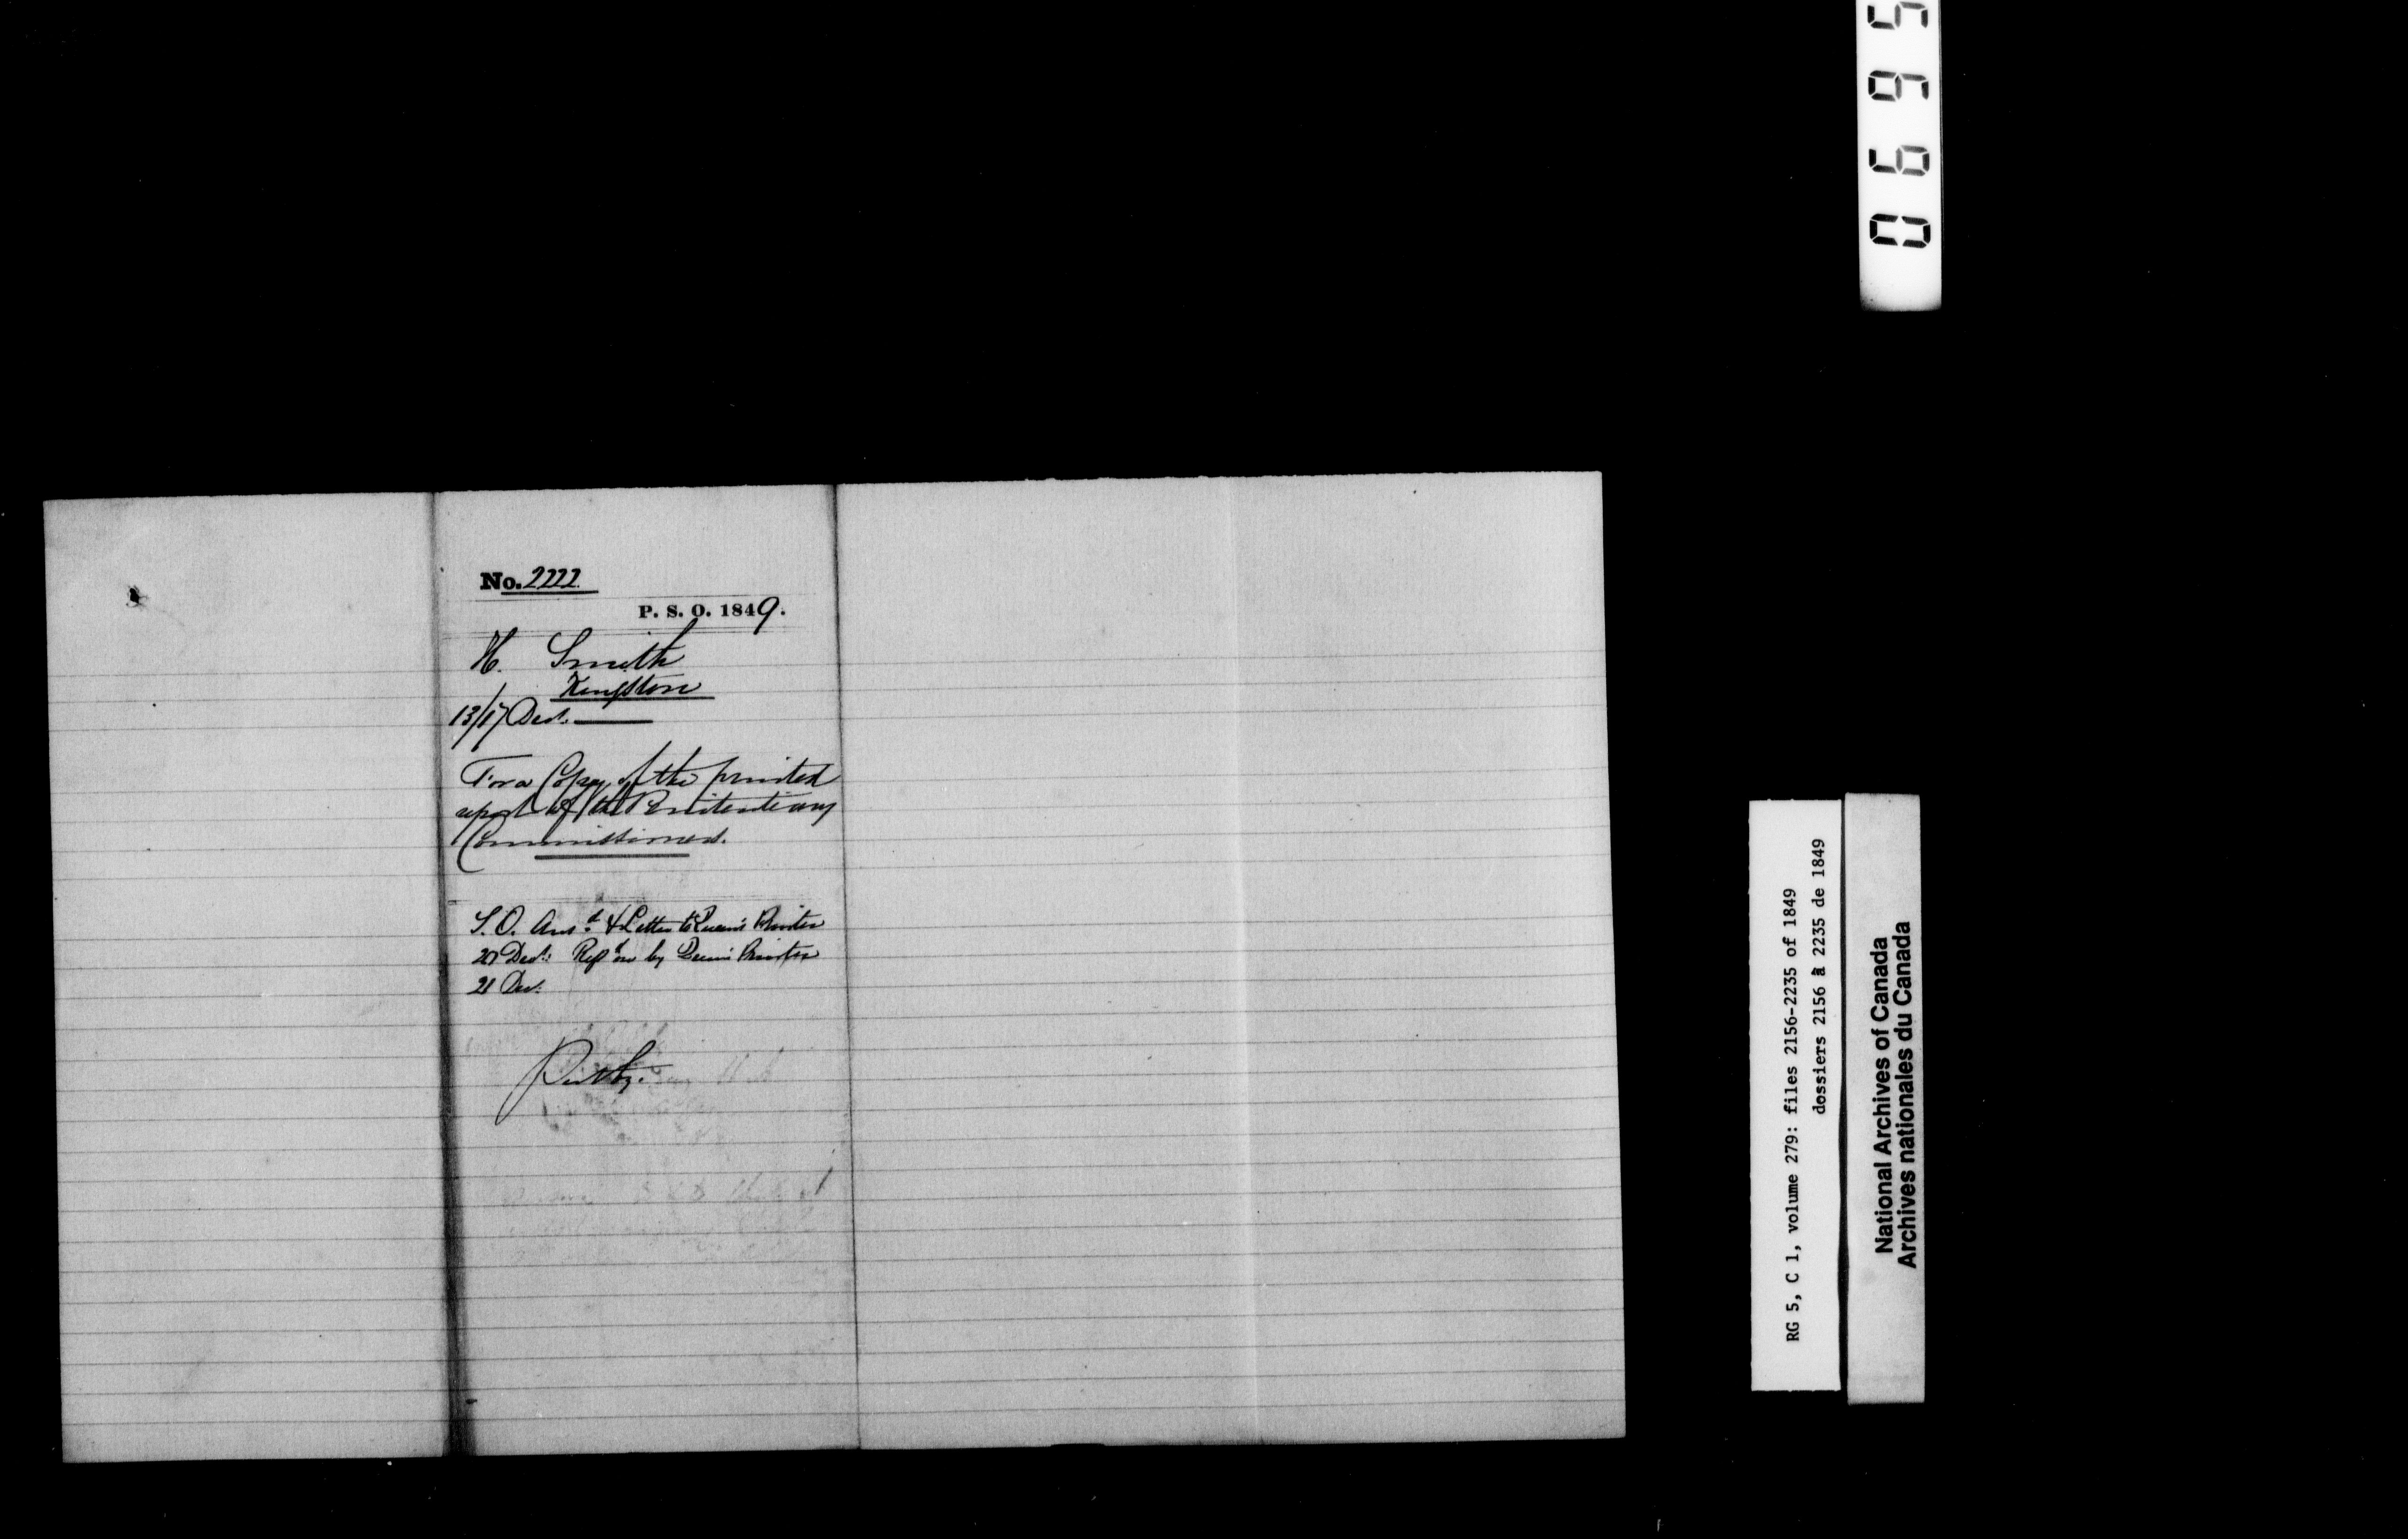 No. 2222
P. S. O. 1849.
H. Smith
Kingston
13/17 Decr.
For a Copy of the printed
report of the Penitentiary
Commissioners.
S.O. Ansd. & Letter to Queen's Printer
20 Decr. Repd. on by Queen's Printer
21 Decr.
RG 5, C 1, volume 279: files 2156-2235 of 1849
dossiers 2156 à 2235 de 1849
National Archives of Canada
Archives nationales du Canada
0695